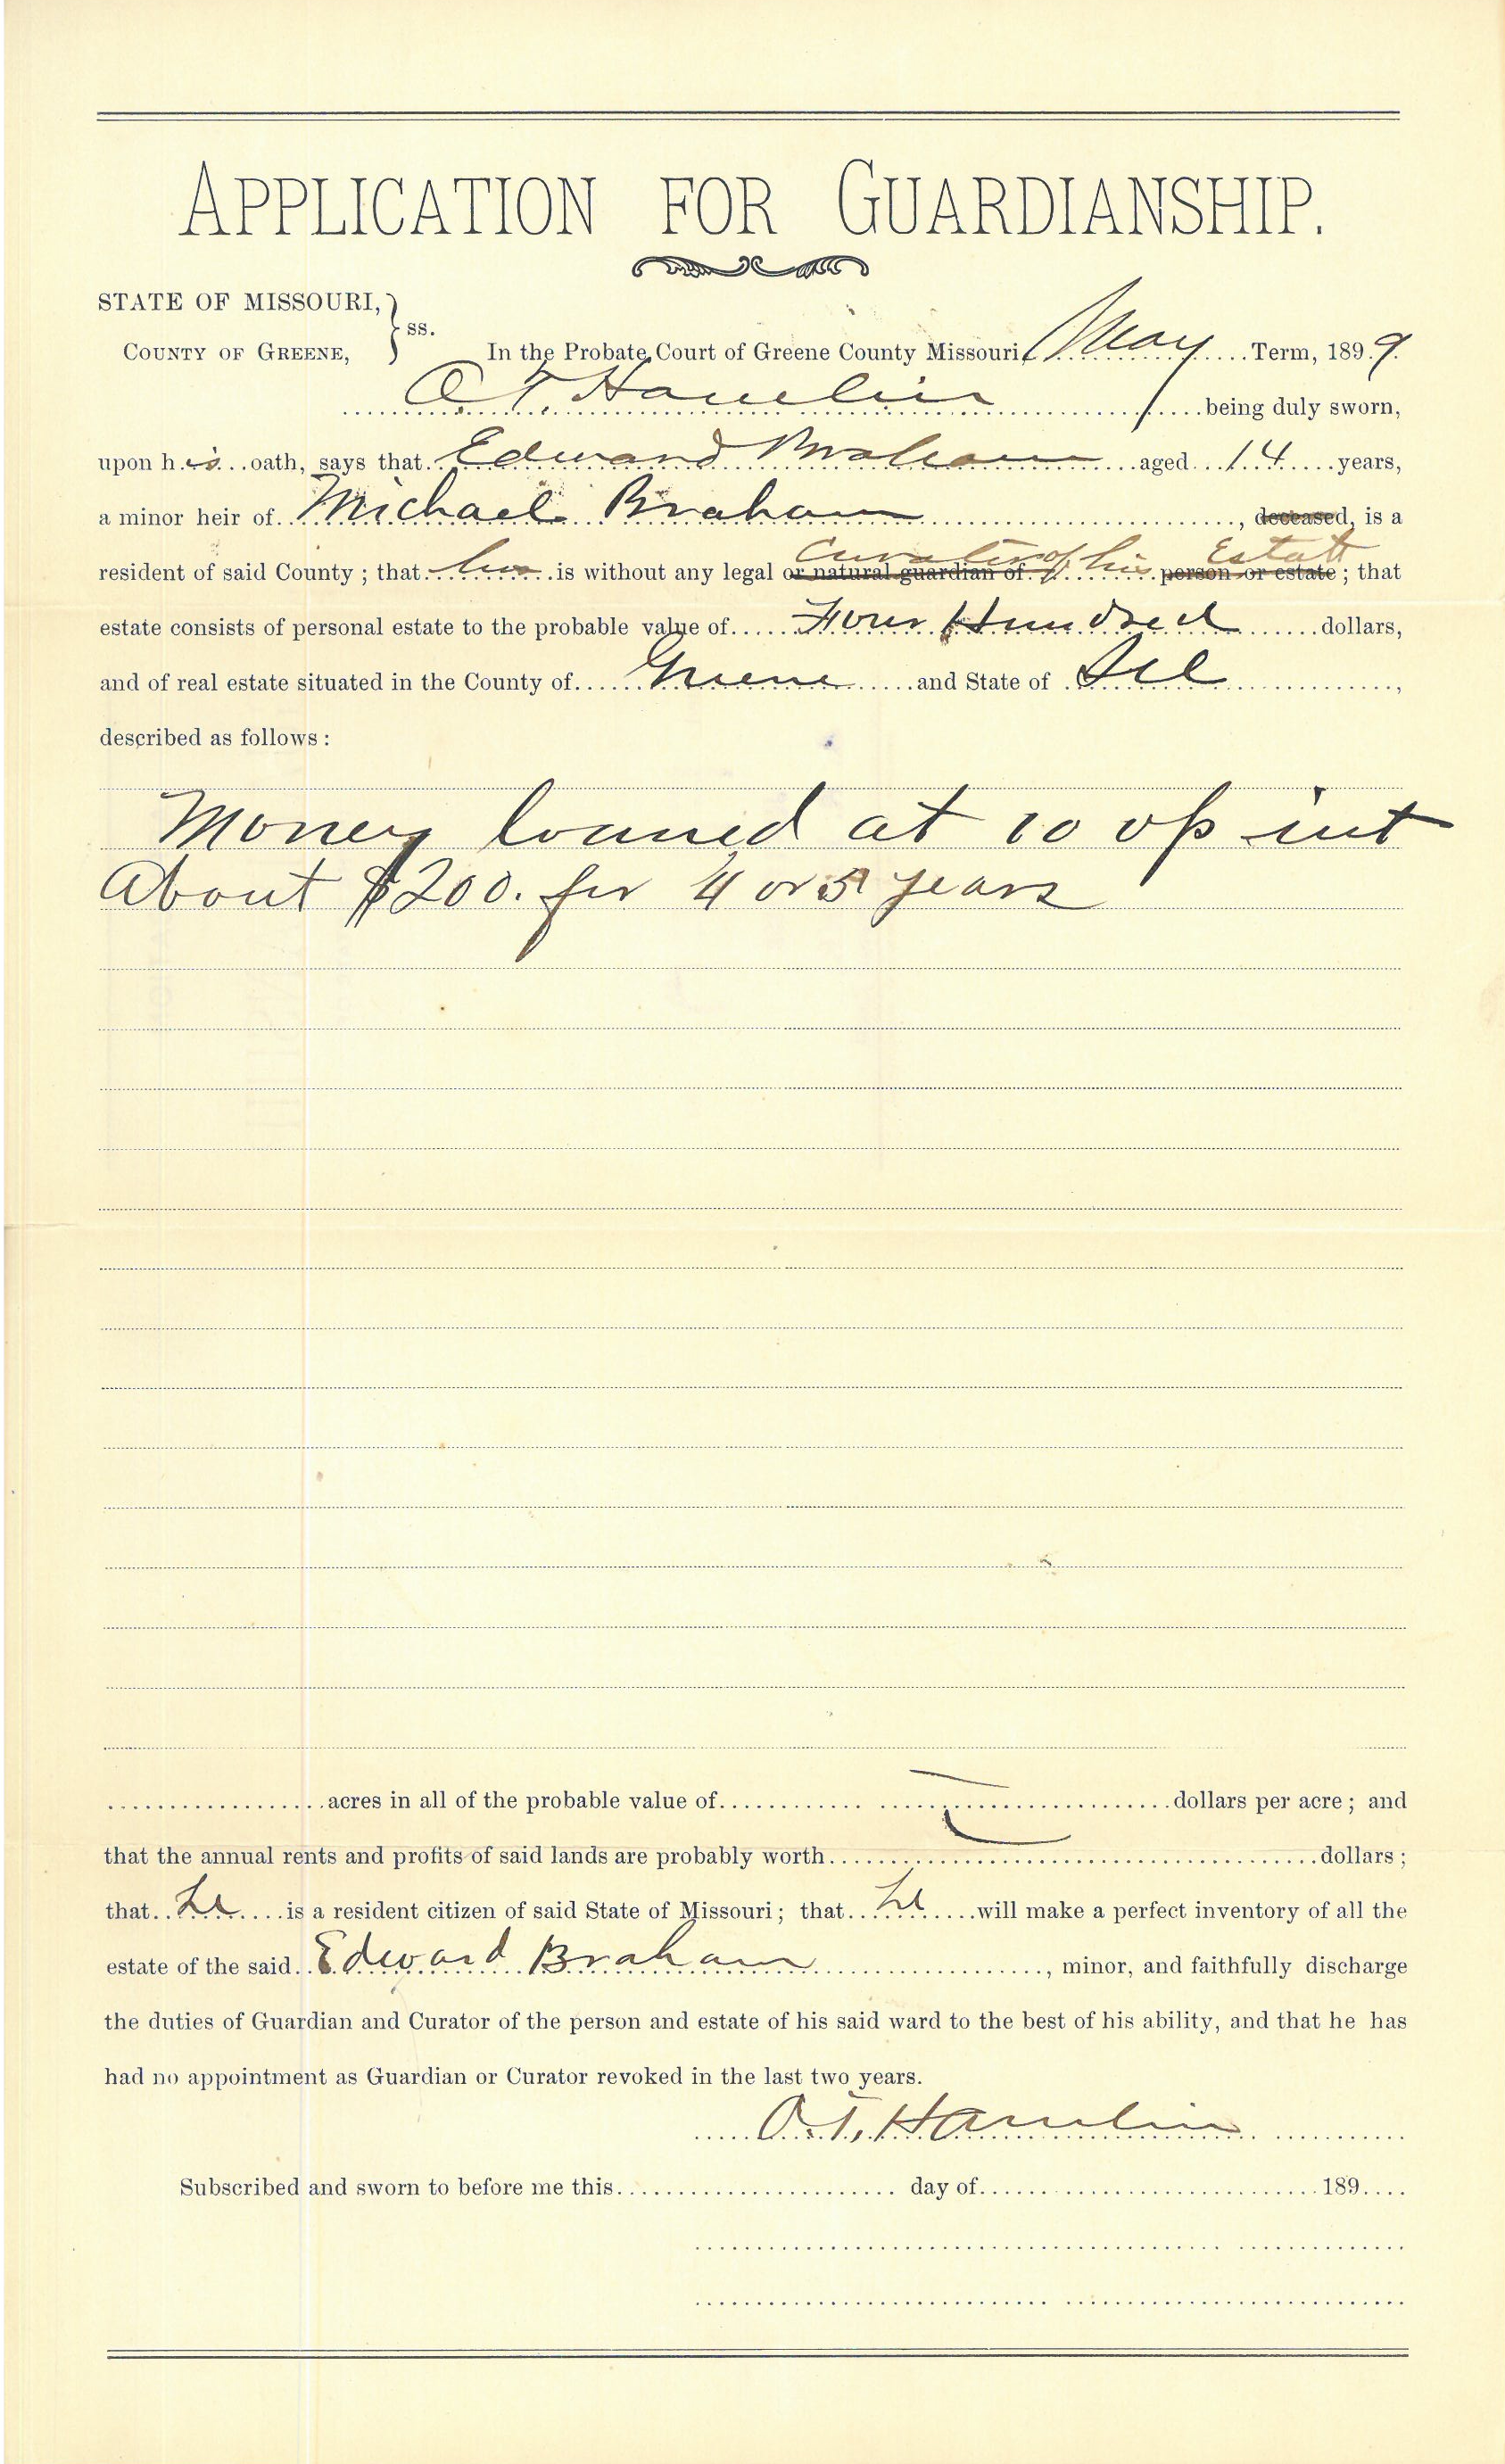 APPLICATION FOR GUARDIANSHIP.
STATE OF MISSOURI,
COUNTY OF GREENE, } ss.
In the Probate Court of Greene County Missouri, May Term, 1899.
O. T. Hamlin being duly sworn,
upon his oath, says that Edward Braham aged 14 years,
a minor heir of Michael Braham, deceased, is a
Curator of his Estate
resident of said County; that he is without any legal or natural guardian of person or estate; that
estate consists of personal estate to the probable value of Four Hundred dollars,
and of real estate situated in the County of Greene and State of Ill,
described as follows:
Money loaned at 10 % int
About $200. for 4 or 5 years
acres in all of the probable value of dollars per acre; and
that the annual rents and profits of said lands are probably worth dollars;
that he is a resident citizen of said State of Missouri; that he will make a perfect inventory of all the
estate of the said Edward Braham, minor, and faithfully discharge
the duties of Guardian and Curator of the person and estate of his said ward to the best of his ability, and that he has
had no appointment as Guardian or Curator revoked in the last two years.
O. T. Hamlin
Subscribed and sworn to before me this day of 189